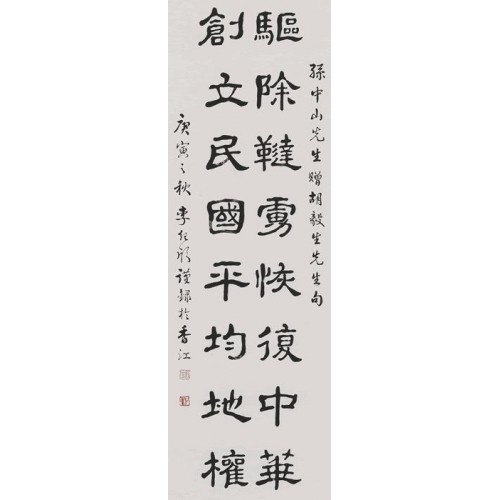 孫中山先生贈胡毅生先生句
驅除韃虜恢復中華
創立民國平均地權
庚寅之秋李謹録於香江